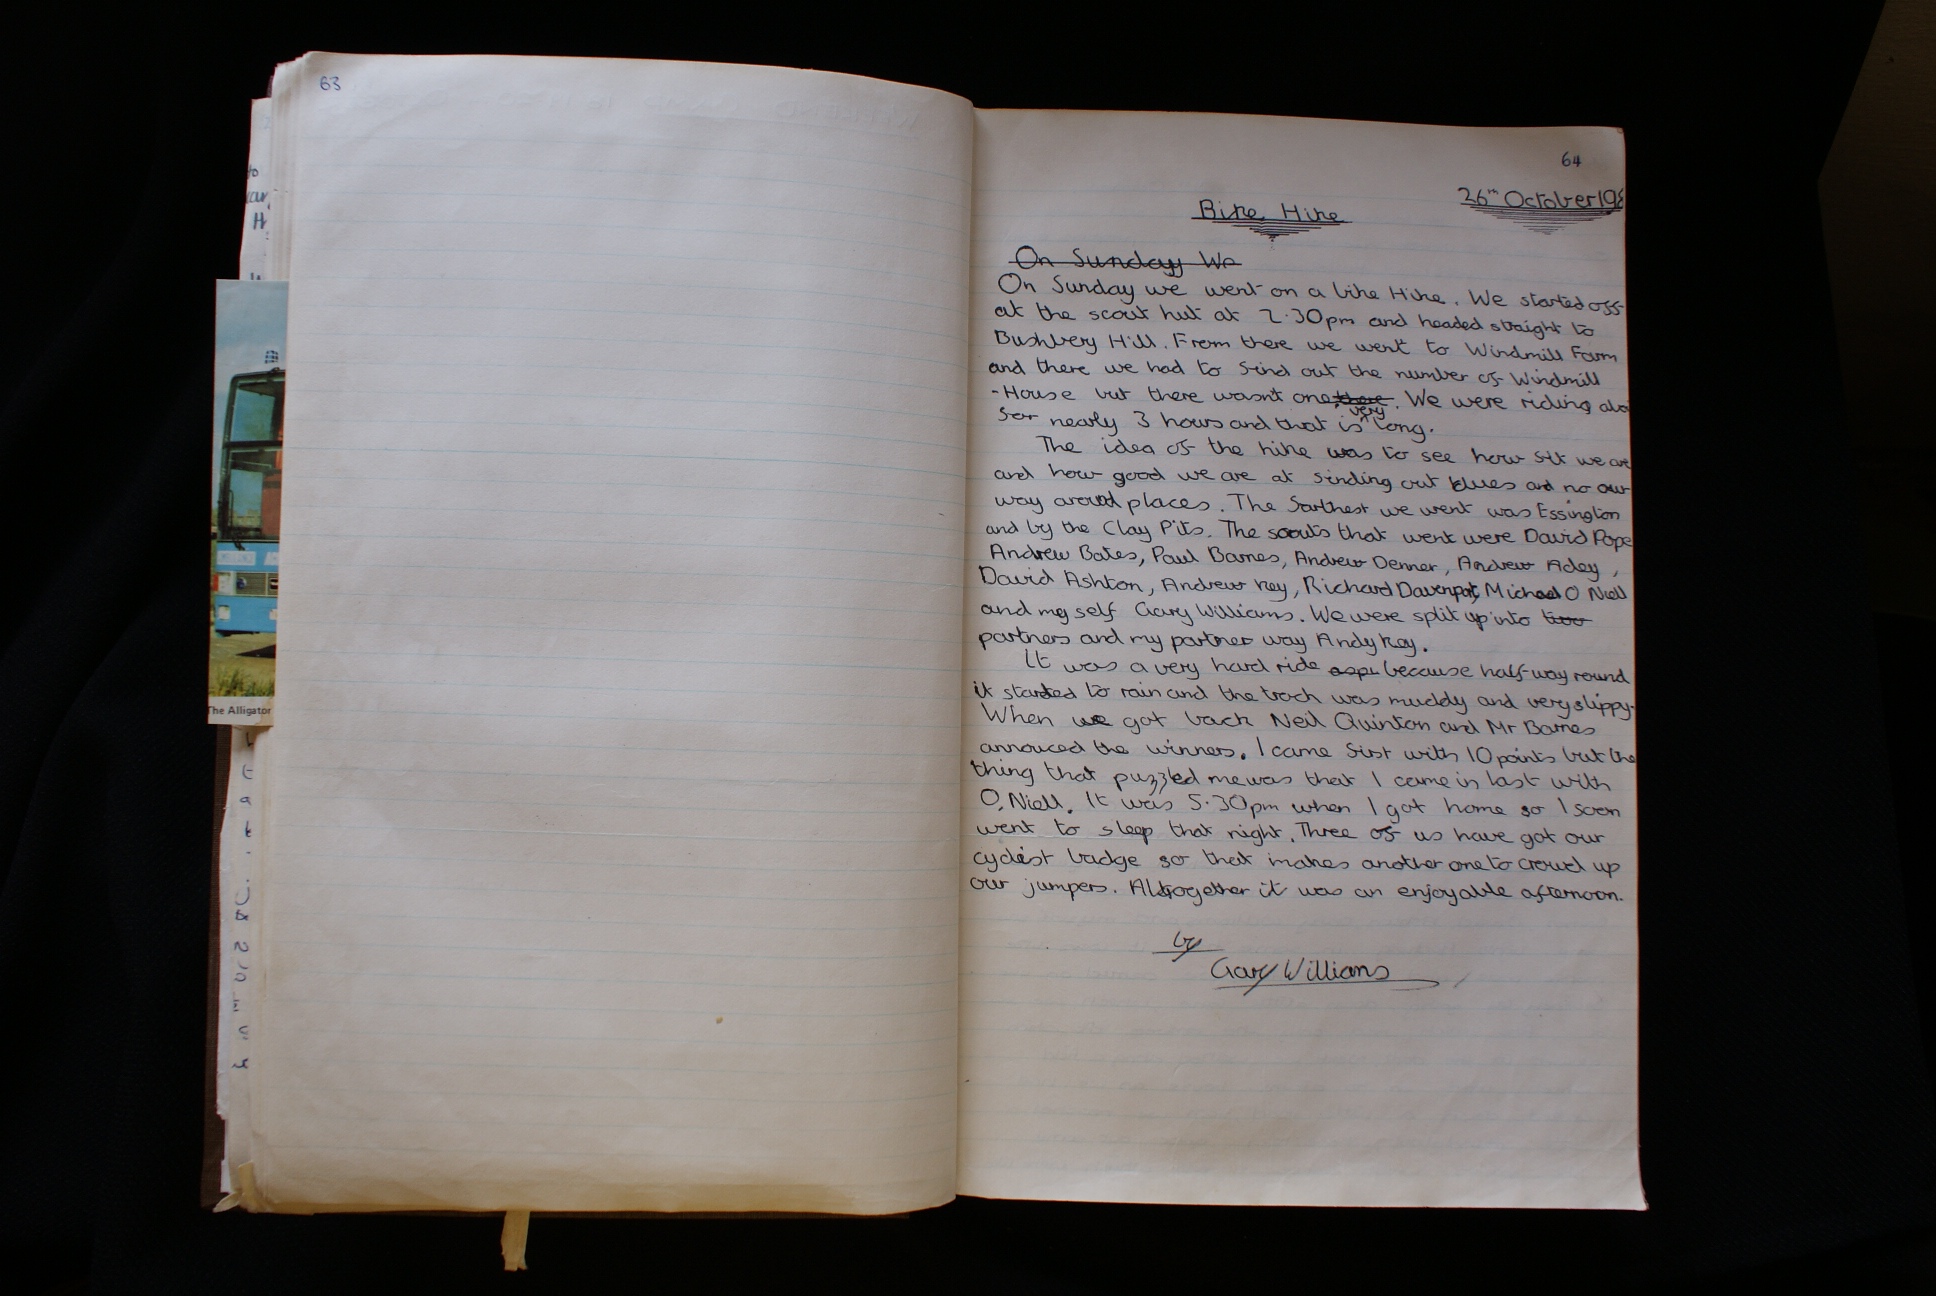 63
The Alligator
64
26th October 198
Bike Hike
On Sunday We
On Sunday we went on a bike Hike. We started off
at the scout hut at 2.30pm and headed straight to
Bushbery Hill. From there we went to Windmill Farm
and there we had to find out the number of Windmill
-House but there wasnt one there. We were riding
for nearly 3 hours and that is very long.
The idea of the hike was to see how fit we are
and how good we are at finding out klues and no our
way around places. The farthest we went was Essington
and by the Clay Pits. The scouts that went were David Pope
Andrew Bates, Paul Barnes, Andrew Denner, Andrew Adey,
David Ashton, Andrew Key, Richard Davenport, Michael O Niell
and my self Gary Williams. We were split up into two
partners and my partner way Andy Key.
It was a very hard ride because half-way round
it started to rain and the track was muddy and very slippy.
When we got back Neil Quinton and Mr Barnes
annouced the winners. I came first with 10 points but the
thing that puzzled me was that I came in last with
O,Niell. It was 5.30pm when I got home so I soon
went to sleep that night. Three of us have got our
cyclist badge so that makes another one to crowd up
our jumpers. Altogether it was an enjoyable afternoon.
by
Gary Williams